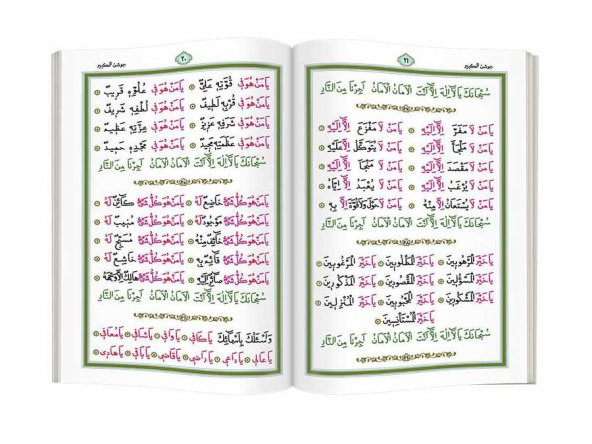 جوشن الكبير
٢٠
يَا مَنْ هُوَ فِي قُوَّتِهِ عَلِيٌّ ۞ يَا مَنْ هُوَ فِي عُلُوِّهِ قَرِيبٌ
يَا مَنْ هُوَ فِي قُرْبِهِ لَطِيفٌ ۞ يَا مَنْ هُوَ فِي لُطْفِهِ شَرِيفٌ
يَا مَنْ هُوَ فِي شَرَفِهِ عَزِيزٌ ۞ يَا مَنْ هُوَ فِي عِزَّتِهِ عَظِيمٌ
يَا مَنْ هُوَ فِي عَظَمَتِهِ مَجِيدٌ ۞ يَا مَنْ هُوَ فِي مَجْدِهِ حَمِيدٌ
سُبْحَانَكَ يَا لَا اِلٰهَ اِلَّا اَنْتَ الْاَمَانُ الْاَمَانُ اَجِرْنَا مِنَ النَّارِ
يَا مَنْ هُوَ كُلُّ شَيْءٍ خَاضِعٌ لَهُ ۞ يَا مَنْ هُوَ كُلُّ شَيْءٍ كَائِنٌ لَهُ
يَا مَنْ هُوَ كُلُّ شَيْءٍ مَوْجُودٌ لَهُ ۞ يَا مَنْ هُوَ كُلُّ شَيْءٍ مُنِيبٌ لَهُ
يَا مَنْ هُوَ كُلُّ شَيْءٍ خَائِفٌ مِنْهُ ۞ يَا مَنْ هُوَ كُلُّ شَيْءٍ مُسَبِّحٌ لَهُ
يَا مَنْ هُوَ كُلُّ شَيْءٍ قَائِمٌ بِهِ ۞ يَا مَنْ هُوَ كُلُّ شَيْءٍ خَاشِعٌ لَهُ
يَا مَنْ هُوَ كُلُّ شَيْءٍ صَائِرٌ اِلَيْهِ ۞ يَا مَنْ هُوَ كُلُّ شَيْءٍ هَالِكٌ اِلَّا وَجْهَهُ
سُبْحَانَكَ يَا لَا اِلٰهَ اِلَّا اَنْتَ الْاَمَانُ الْاَمَانُ اَجِرْنَا مِنَ النَّارِ
وَاَسْئَلُكَ بِاَسْمَائِكَ يَا كَافِي ۞ يَا وَافِي ۞ يَا شَافِي ۞ يَا مُعَافِي
يَا عَالِي ۞ يَا دَاعِي ۞ يَا رَاضِي ۞ يَا قَاضِي ۞ يَا بَاقِي ۞ يَا هَادِي
جوشن الكبير
٢١
سُبْحَانَكَ يَا لَا اِلٰهَ اِلَّا اَنْتَ الْاَمَانُ الْاَمَانُ اَجِرْنَا مِنَ النَّارِ
يَا مَنْ لَا مَفَرَّ اِلَّا اِلَيْهِ ۞ يَا مَنْ لَا مَفْزَعَ اِلَّا اِلَيْهِ
يَا مَنْ لَا مَلْجَأَ اِلَّا اِلَيْهِ ۞ يَا مَنْ لَا يُتَوَكَّلُ اِلَّا عَلَيْهِ
يَا مَنْ لَا مَقْصَدَ اِلَّا اِلَيْهِ ۞ يَا مَنْ لَا مَنْجَأَ اِلَّا اِلَيْهِ
يَا مَنْ لَا يُرْغَبُ اِلَّا اِلَيْهِ ۞ يَا مَنْ لَا يُعْبَدُ اِلَّا اِيَّاهُ
يَا مَنْ لَا يُسْتَعَانُ اِلَّا مِنْهُ ۞ يَا مَنْ لَا حَوْلَ وَلَا قُوَّةَ اِلَّا بِهِ
سُبْحَانَكَ يَا لَا اِلٰهَ اِلَّا اَنْتَ الْاَمَانُ الْاَمَانُ اَجِرْنَا مِنَ النَّارِ
يَا خَيْرَ الْمَرْهُوبِينَ ۞ يَا خَيْرَ الْمَطْلُوبِينَ ۞ يَا خَيْرَ الْمَرْغُوبِينَ
يَا خَيْرَ الْمَسْؤُلِينَ ۞ يَا خَيْرَ الْمَقْصُودِينَ ۞ يَا خَيْرَ الْمَذْكُورِينَ
يَا خَيْرَ الْمَشْكُورِينَ ۞ يَا خَيْرَ الْمَحْبُوبِينَ ۞ يَا خَيْرَ الْمُنْزِلِينَ
يَا خَيْرَ الْمُسْتَأْنِسِينَ
سُبْحَانَكَ يَا لَا اِلٰهَ اِلَّا اَنْتَ الْاَمَانُ الْاَمَانُ اَجِرْنَا مِنَ النَّارِ